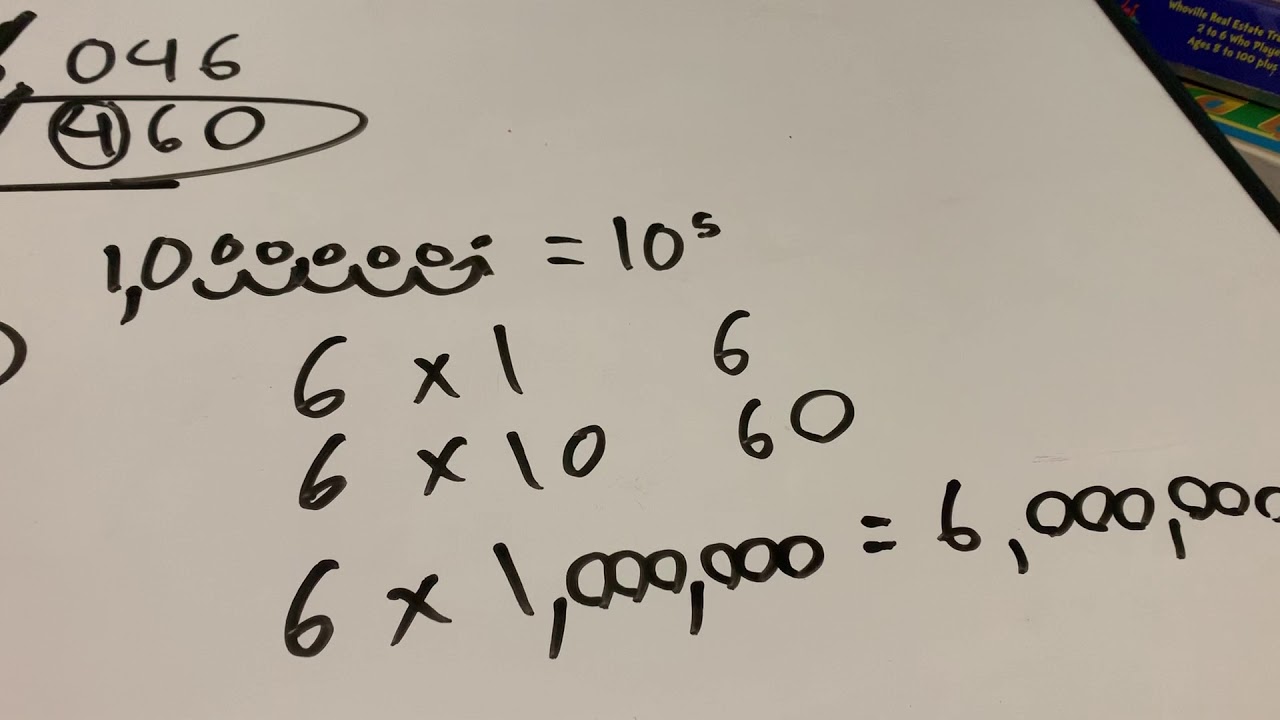 Whoville Real Estate
2 to 6 Who
Ages 8 to 100 plus
046
460
1,000,000. = 10⁵
6 x 1 6
6 x 10 60
6 x 1,000,000 = 6,000,000